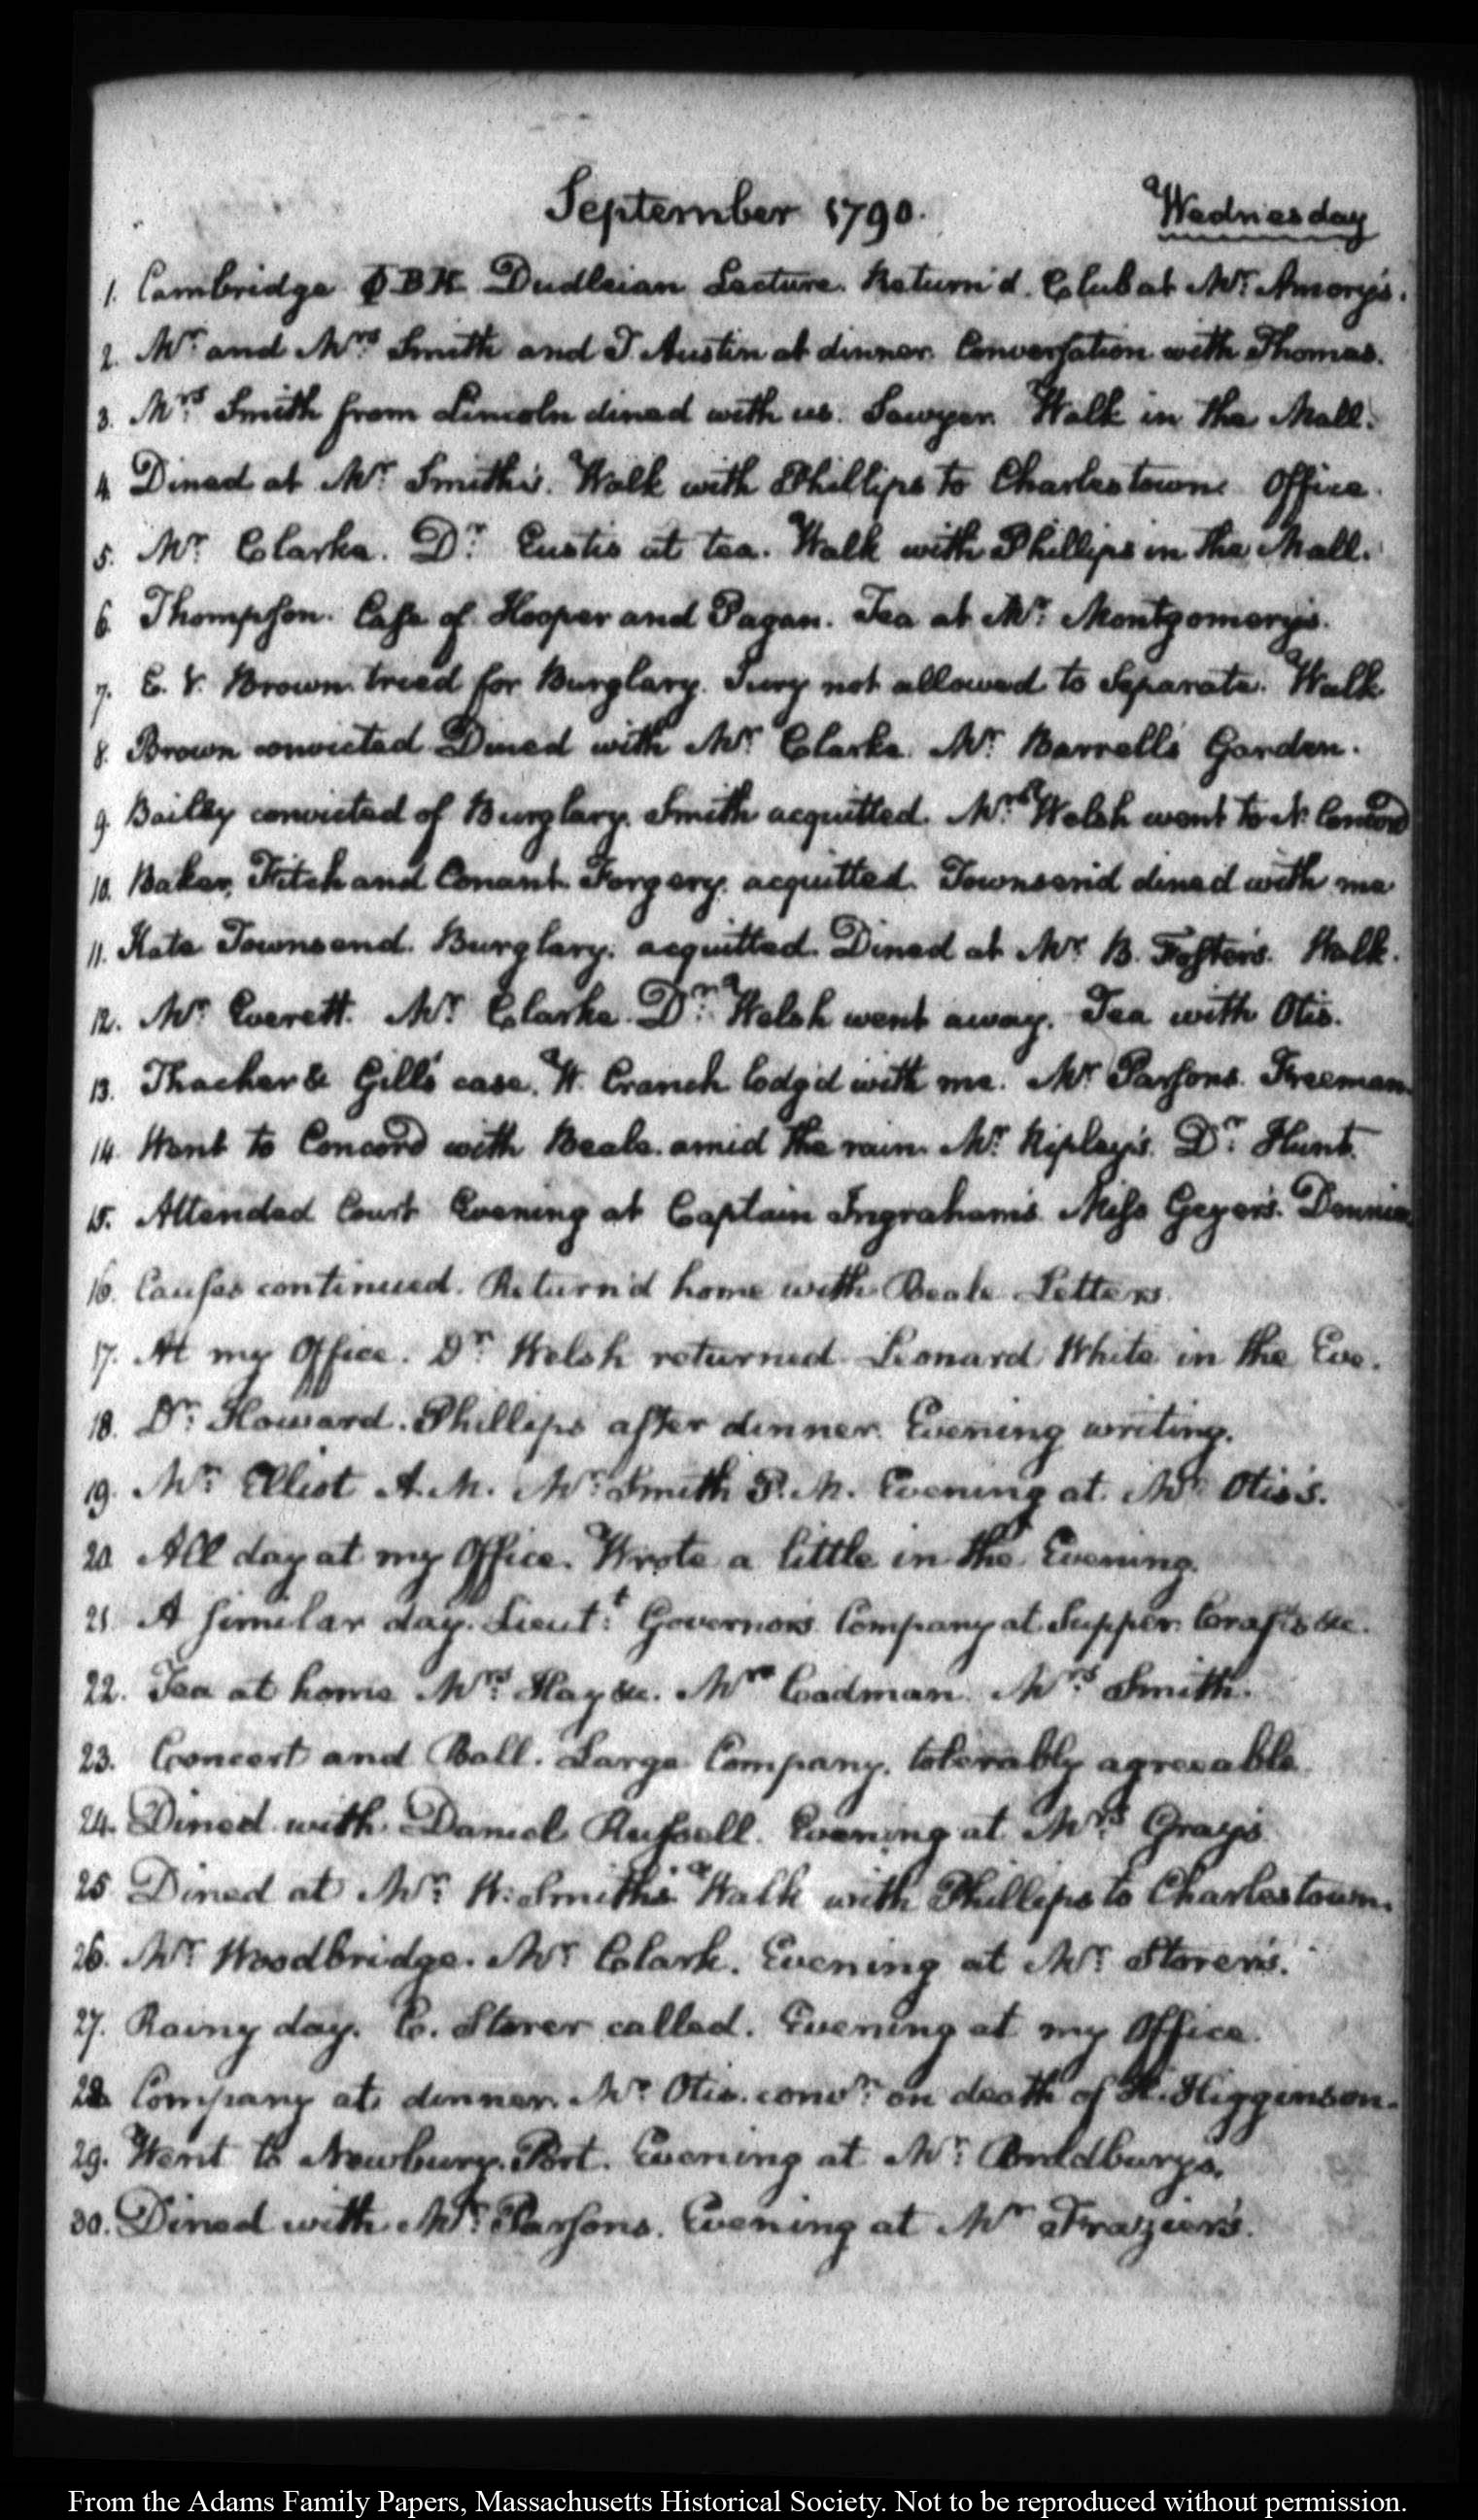 September 1790.
Wednesday
1. Cambridge ΦBK Dudleian Lecture. Return'd. Club at Mr. Amory's.
2. Mr. and Mrs. Smith and J. Austin at dinner. Conversation with Thomas.
3. Mrs. Smith from Lincoln dined with us. Sawyer. Walk in the Mall.
4. Dined at Mr. Smith's. Walk with Phillips to Charlestown. Office.
5. Mr. Clarke. Dr. Eustis at tea. Walk with Phillips in the Mall.
6. Thompson. Case of Hooper and Pagan. Tea at Mr. Montgomery's.
7. E. V. Brown tried for Burglary. Jury not allowed to Separate. Walk
8. Brown convicted Dined with Mr. Clarke. Mr. Barrell's Garden.
9. Bailey convicted of Burglary. Smith acquitted. Mrs. Welsh went to N. Concord
10. Baker, Fitch and Conant. Forgery. acquitted. Townsend dined with me
11. Kate Townsend. Burglary. acquitted. Dined at Mr. B. Foster's. Walk.
12. Mr. Everett. Mr. Clarke. Dr. Welsh went away. Tea with Otis.
13. Thacher & Gill's case. W. Cranch lodg'd with me. Mr. Parsons. Freeman.
14. Went to Concord with Beale. amid the rain. Mr. Ripley's. Dr. Hunt.
15. Attended Court Evening at Captain Ingraham's. Miss Geyer's. Dennie.
16. Causes continued. Return'd home with Beale. Letters.
17. At my Office. Dr. Welsh returned. Leonard White in the Eve.
18. Dr. Howard. Phillips after dinner. Evening writing.
19. Mr. Elliot A.M. Mr. Smith P.M. Evening at Mr. Otis's.
20. All day at my Office. Wrote a little in the Evening.
21. A similar day. Lieut.t Governor's. Company at Supper. Crafts &c.
22. Tea at home Mrs. Hay &c. Mrs. Codman. Mrs. Smith.
23. Concert and Ball. Large Company. tolerably agreeable.
24. Dined with Daniel Russell. Evening at Mrs. Gray's
25. Dined at Mr. W. Smith's Walk with Phillips to Charlestown.
26. Mr. Woodbridge. Mr. Clark. Evening at Mr. Storer's.
27. Rainy day. C. Storer called. Evening at my Office.
28. Company at dinner. Mr. Otis. conv.n on death of H. Higginson.
29. Went to Newbury-Port. Evening at Mr. Bradbury's.
30. Dined with Mr. Parsons. Evening at Mr. Frazier's.
From the Adams Family Papers, Massachusetts Historical Society. Not to be reproduced without permission.